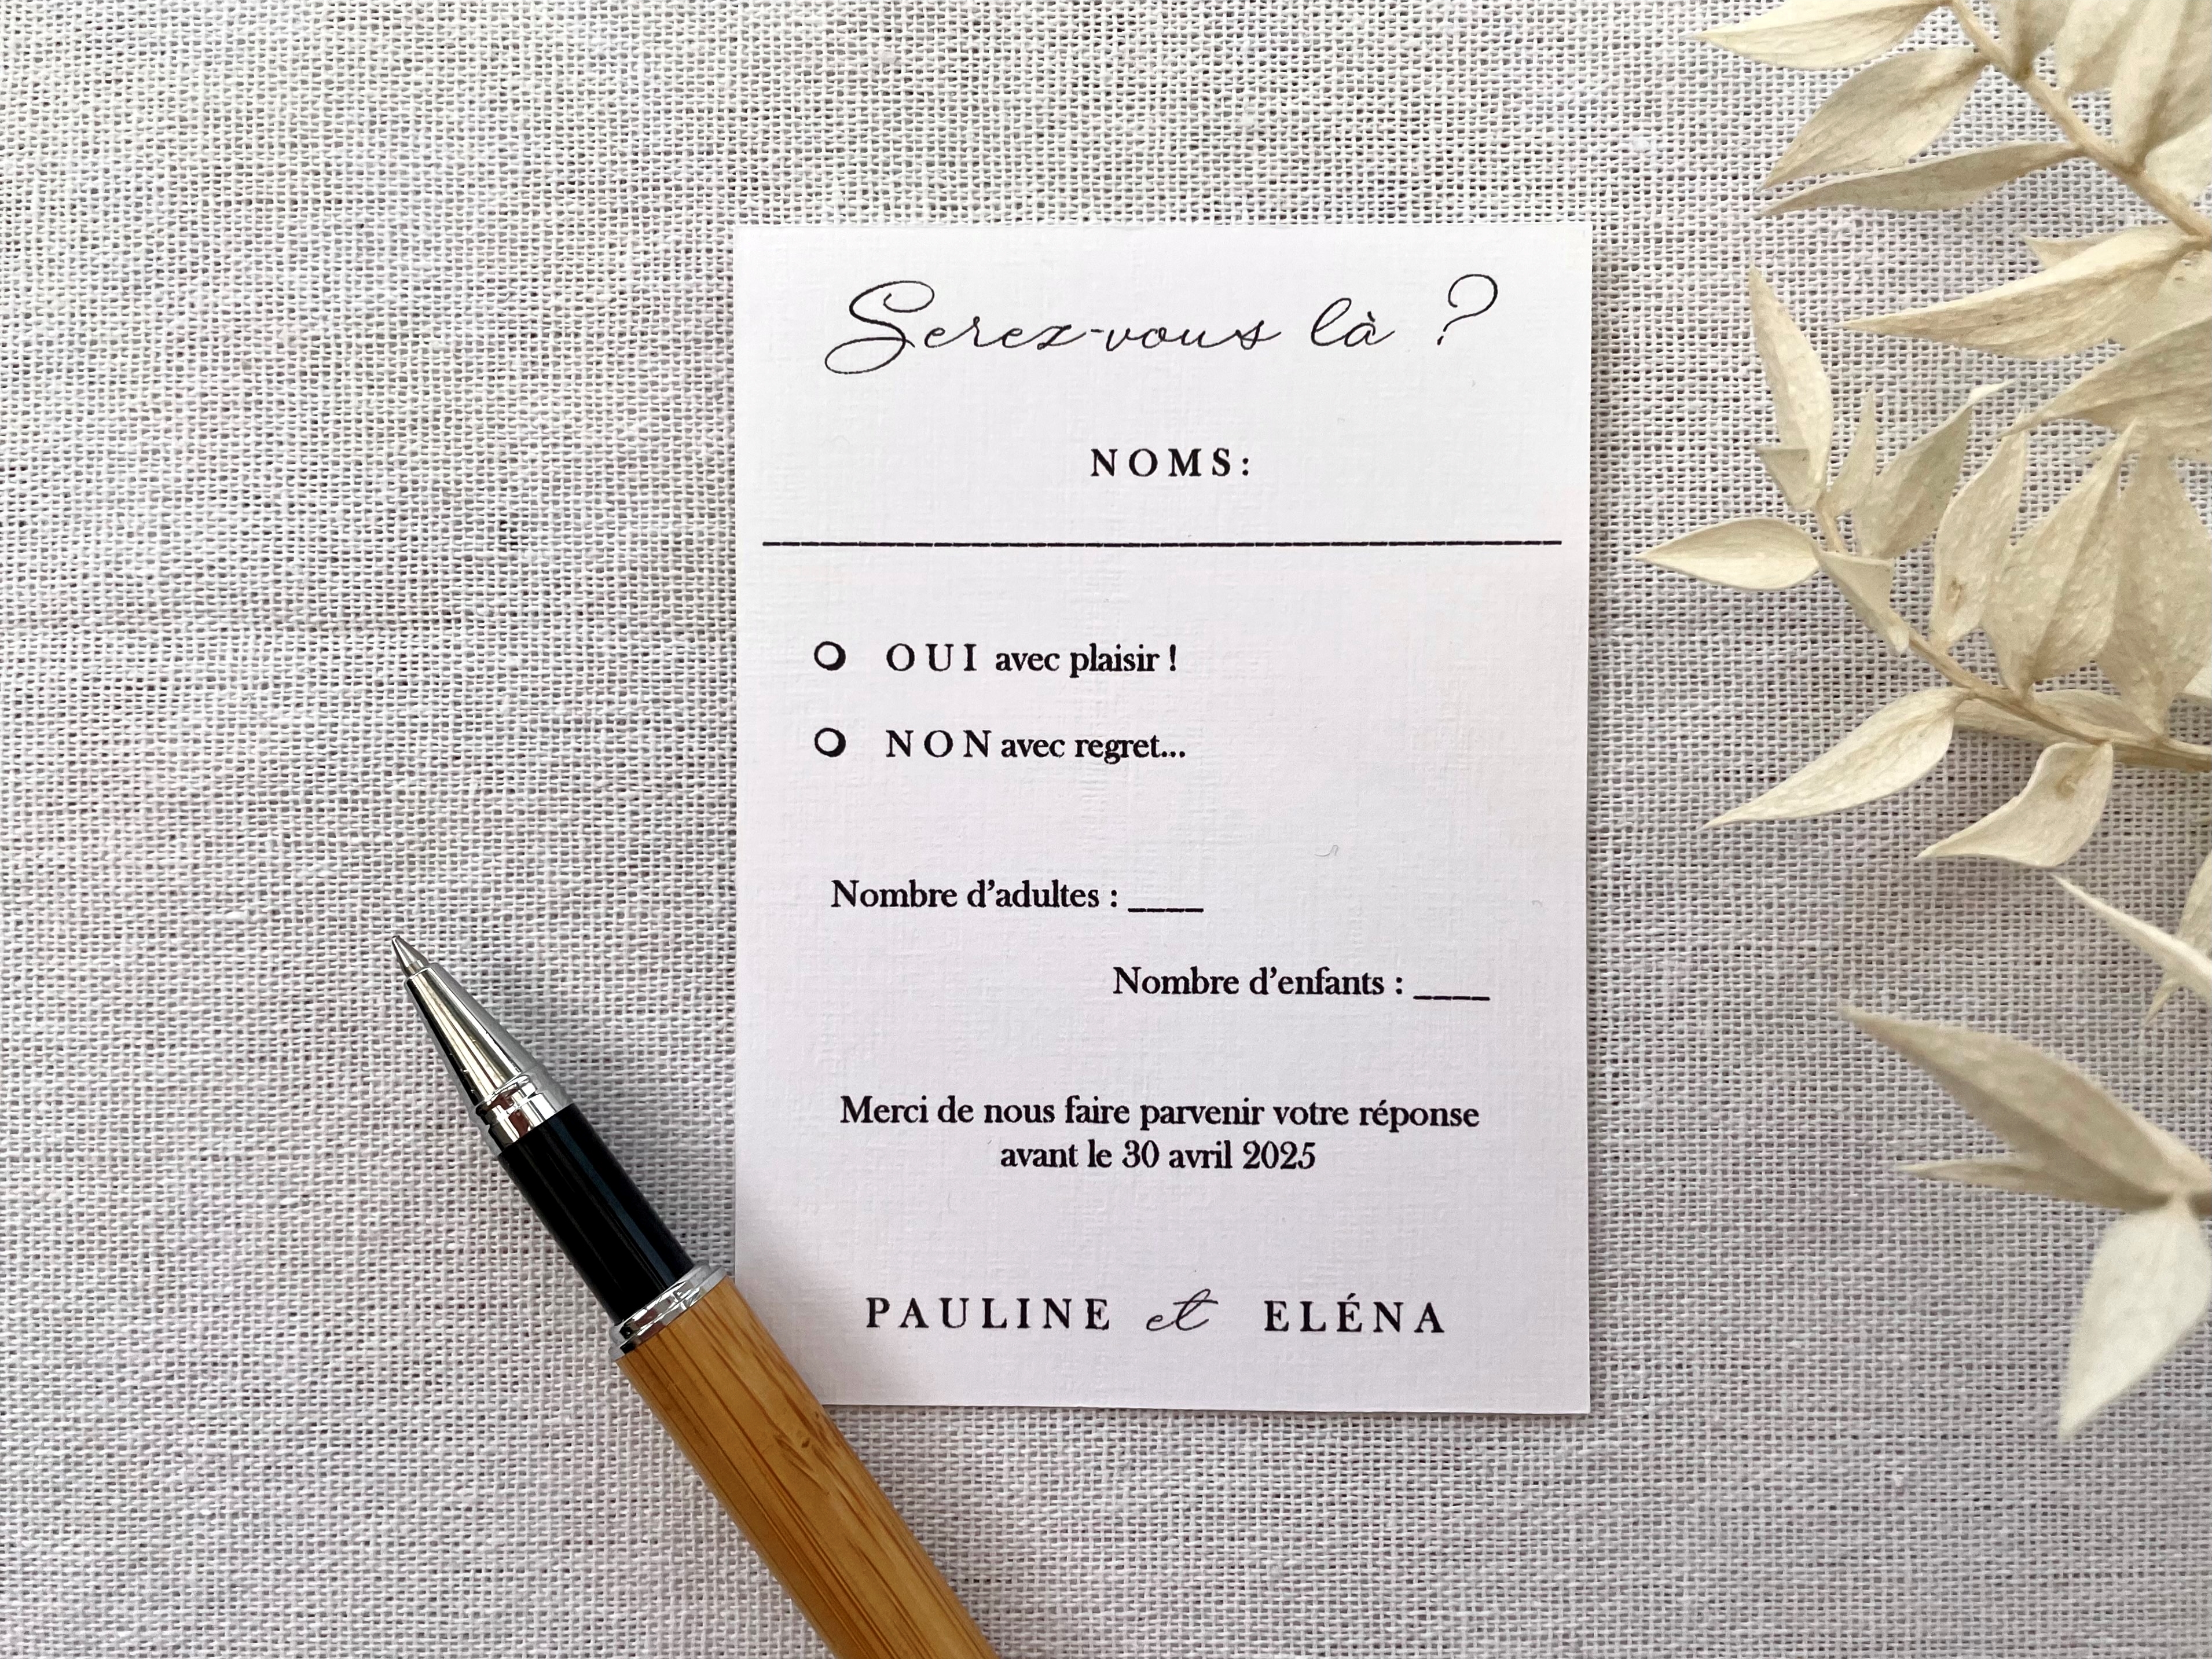 Serez-vous là ?
NOMS:
OUI avec plaisir !
NON avec regret...
Nombre d’adultes : ____
Nombre d’enfants : ____
Merci de nous faire parvenir votre réponse
avant le 30 avril 2025
PAULINE et ELÉNA